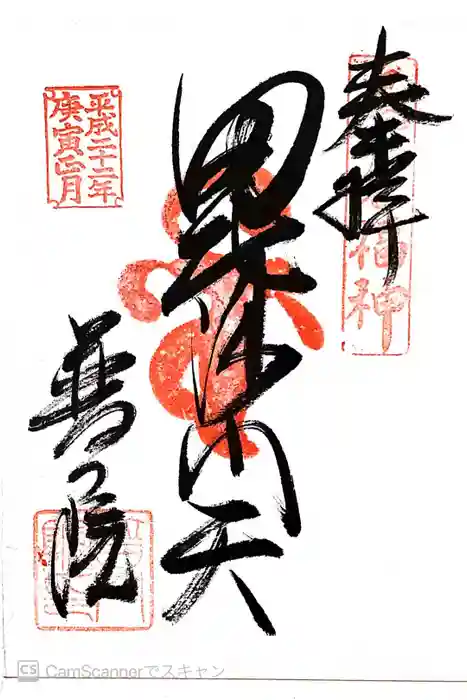 奉拝
福神
毘沙門天
平成二十二年
庚寅正月
普門院
CS CamScannerでスキャン